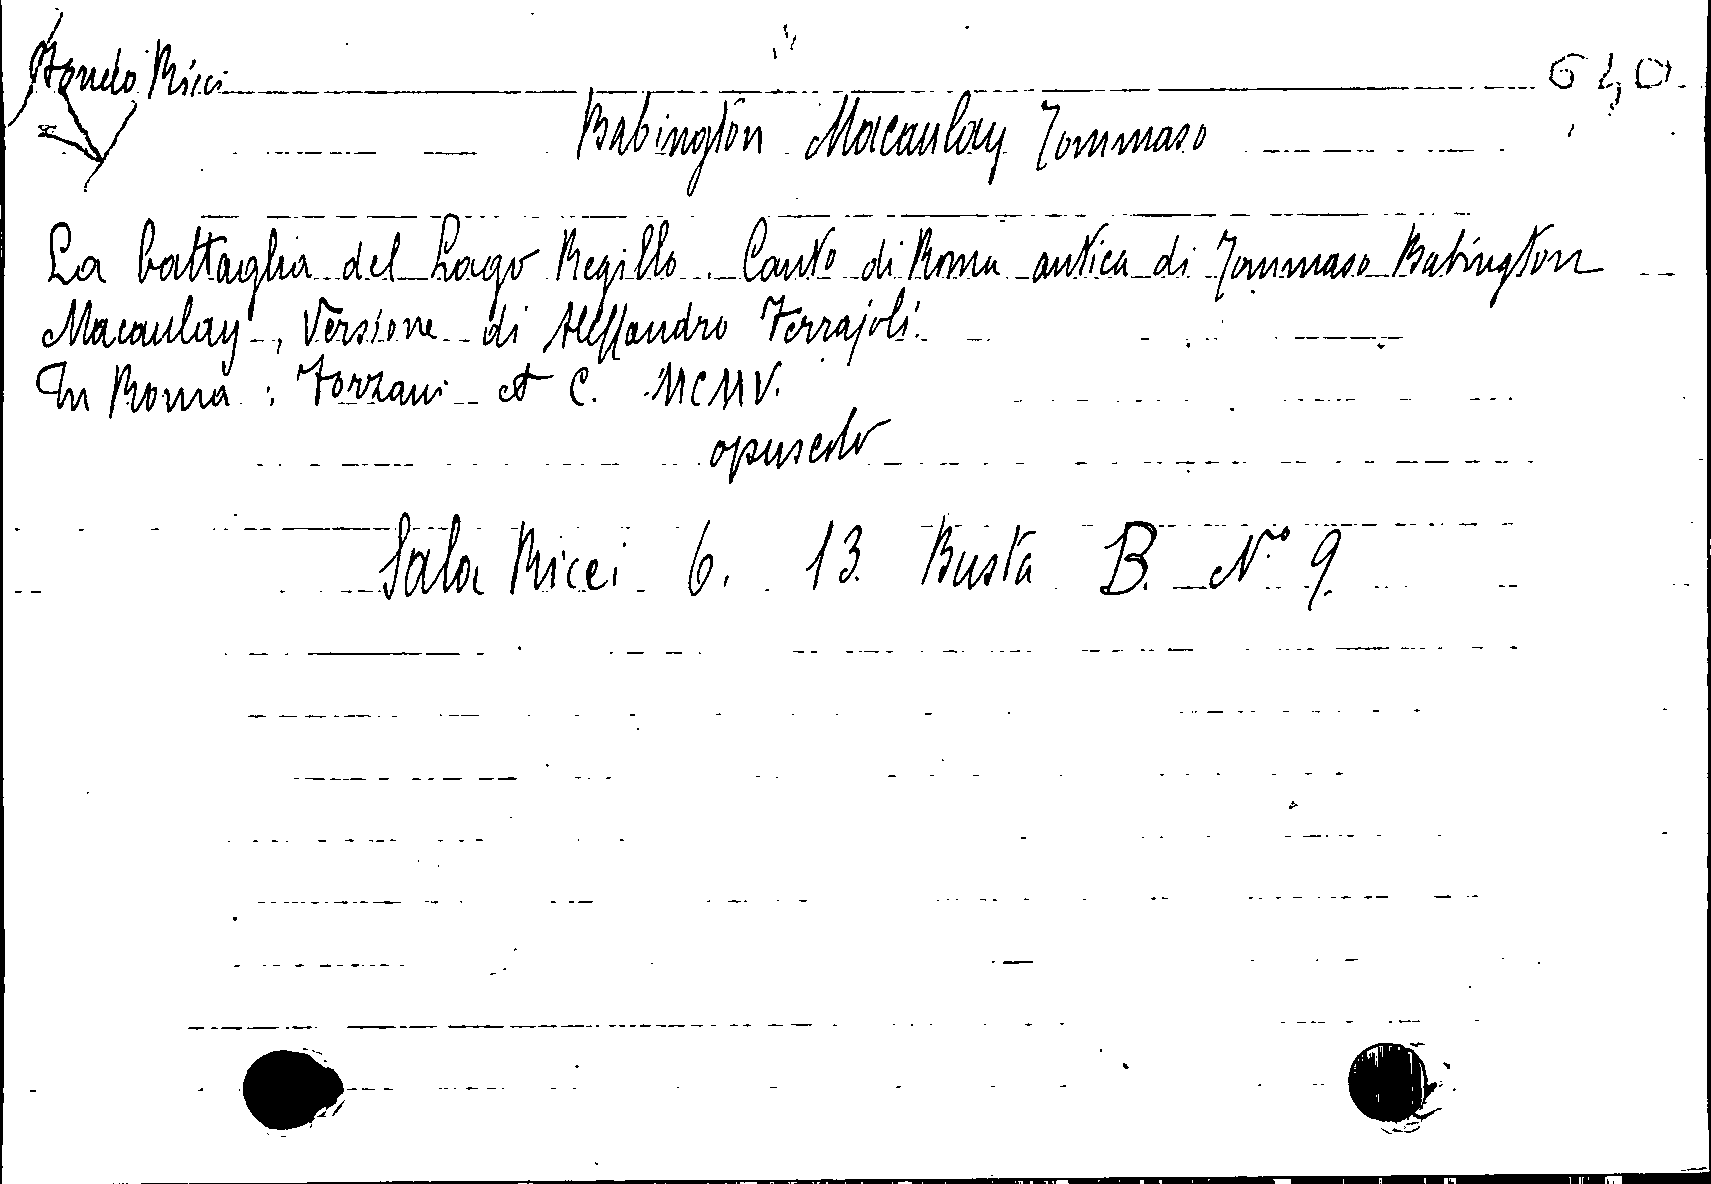 Fondo Ricci 640
Babington Macaulay Tommaso
La battaglia del Lago Regillo. Canto di Roma antica di Tommaso Babington
Macaulay, Versione di Alessandro Ferrajoli.
In Roma: Forzani et C. MCMV.
opuscolo
Sala Ricci 6. 13. Busta B. N.º 9.